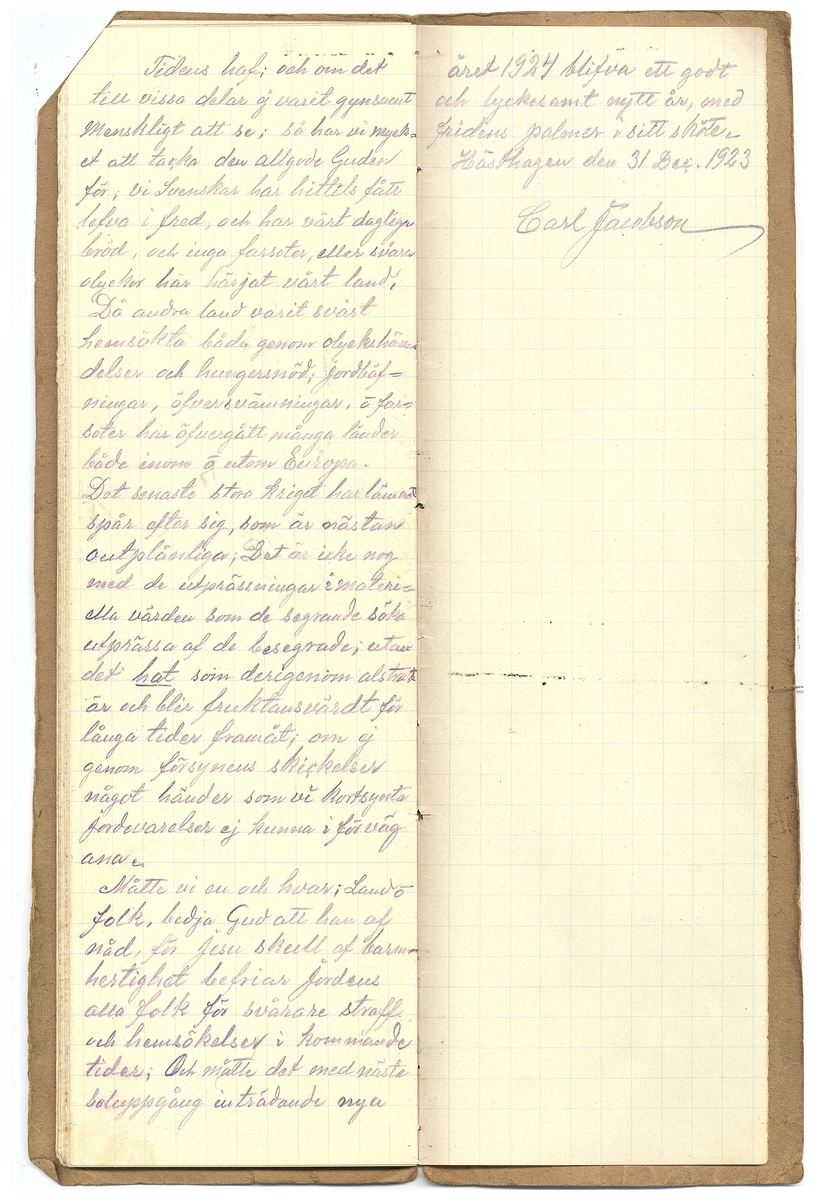 Tidens haf; och om det
till vissa delar ej varit gynsamt
Menskligt att se; så har vi myck=
et att tacka den allgode Guden
för; vi Svenskar har hittils fått
lefva i fred, och har vårt dagliga
bröd, och inga farsoter, eller svåra
olyckor har härjat vårt land,
Då andra land varit svårt
hemsökta båda genom olyckshän=
delser och hungersnöd; Jordbäf=
ningar, öfversvämningar, ō far=
soter har öfvergått många länder
både inom ō utom Europa.
Det senaste stora kriget har lämnat
spår efter sig, som är nästan
outplånliga; Det är icke nog
med de utprässningar i materi=
ella värden som de segrande söka
utprässa af de besegrade; utan
det hat som derigenom alstrat
är och blir fruktansvärdt för
långa tider framåt; om ej
genom försynens skickelser
något händer som vi kortsynta
Jordevarelser ej kunna i förväg
ana.
Måtte vi en och hvar; Land ō
folk, bedja Gud att han af
nåd, för Jesu skull af barm=
hertighet befriar Jordens
alla folk för svårare straff
och hemsökelser i kommande
tider; Och måtte det med nästa
soluppgång inträdande nya
året 1924 blifva ett godt
och lyckosamt nytt år, med
fridens palmer i sitt sköte.
Hästhagen den 31 Dec. 1923
Carl Jacobson